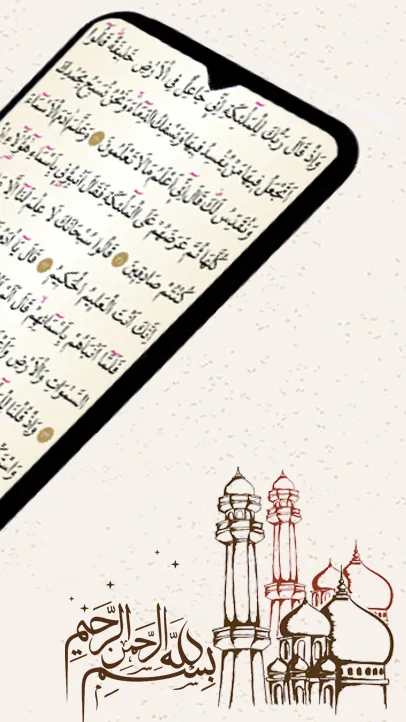 وَاِذْ قَالَ رَبُّكَ لِلْمَلٰٓئِكَةِ اِنّ۪ي جَاعِلٌ فِي الْاَرْضِ خَل۪يفَةًۜ قَالُٓوا
اَتَجْعَلُ ف۪يهَا مَنْ يُفْسِدُ ف۪يهَا وَيَسْفِكُ الدِّمَٓاءَۚ وَنَحْنُ نُسَبِّحُ بِحَمْدِكَ
وَنُقَدِّسُ لَكَۜ قَالَ اِنّ۪ٓي اَعْلَمُ مَا لَا تَعْلَمُونَ ﴿٣٠﴾ وَعَلَّمَ اٰدَمَ الْاَسْمَٓاءَ
كُلَّهَا ثُمَّ عَرَضَهُمْ عَلَى الْمَلٰٓئِكَةِ فَقَالَ اَنْبِؤُ۫ن۪ي بِاَسْمَٓاءِ هٰٓؤُ۬لَٓاءِ
كُنْتُمْ صَادِق۪ينَ ﴿٣١﴾ قَالُوا سُبْحَانَكَ لَا عِلْمَ لَنَٓا اِلَّا
اِنَّكَ اَنْتَ الْعَل۪يمُ الْحَك۪يمُ ﴿٣٢﴾ قَالَ يَٓا اٰدَمُ
فَلَمَّٓا اَنْبَاَهُمْ بِاَسْمَٓائِهِمْۙ قَالَ
السَّمٰوَاتِ وَالْاَرْضِۙ
﴿٣٣﴾ وَاِذْ قُلْنَا
بِسْمِ اللّٰهِ الرَّحْمٰنِ الرَّحِيمِ